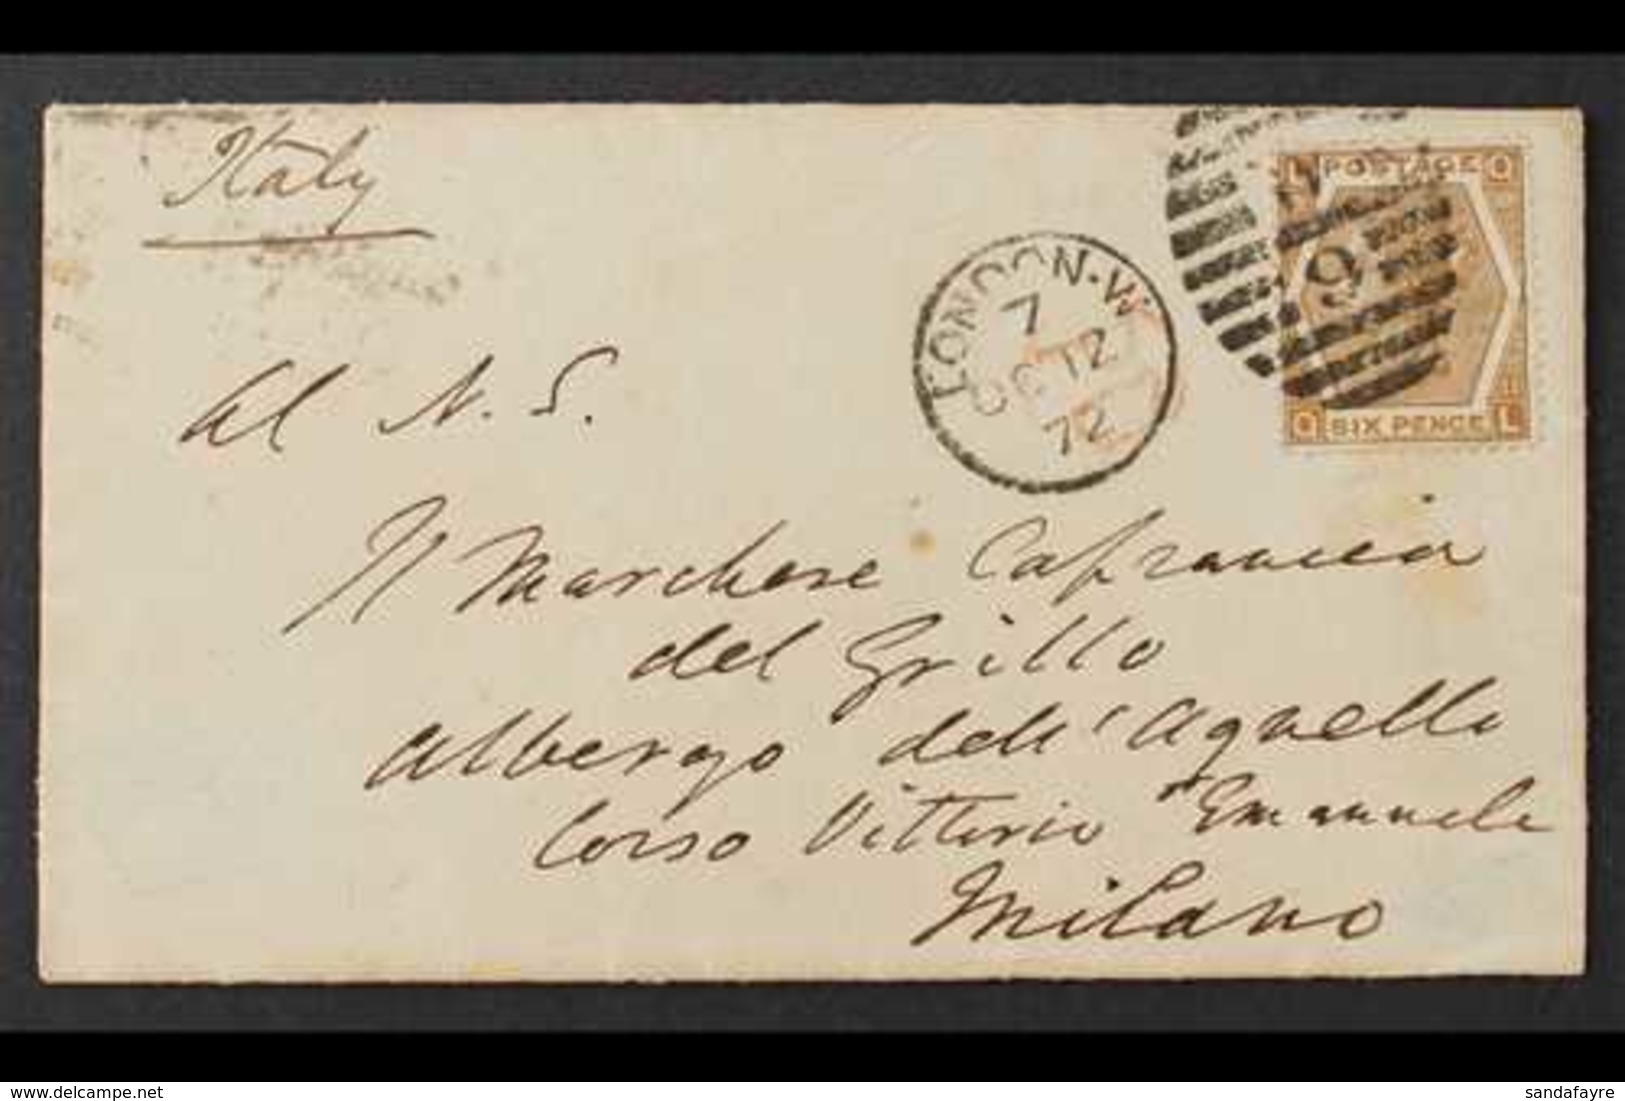 Italy
LONDON·W
7
OC 12
72
W
9
L POSTAGE Q
Q SIX PENCE L
Al N. S.
Il Marchese Capranica
del Grillo
Albergo dell' Agnello
Corso Vittorio Emanuele
Milano
www.delcampe.net
sandafayre